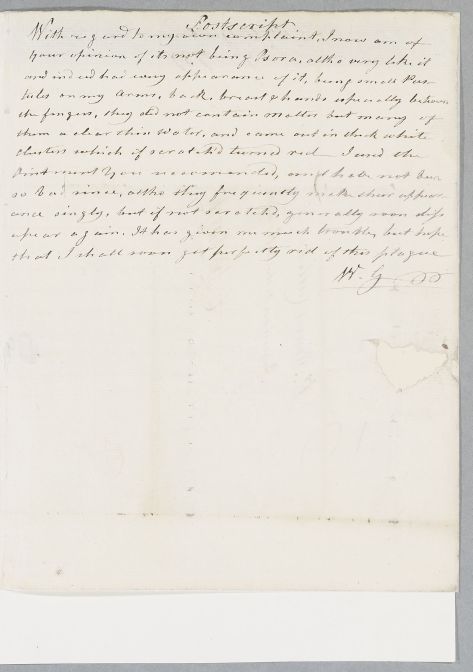 Postscript
With regard to my own complaint, I now am of
your opinion of its not being Psora, altho very like it
and indeed had every appearance of it, being small Pus
tules on my Arms, back, breast & hands especially between
the fingers, they did not contain matter but many of
them a clear thin Water, and came out in thick white
clusters which if scratch'd turned red I used the
Ointment you recommended, and have not been
so bad since, altho they frequently make their appear
ance singly, but if not scratch'd, generally soon diss
apear again. It has given me much trouble, but hope
that I shall soon get perfectly rid of this plague
W. G